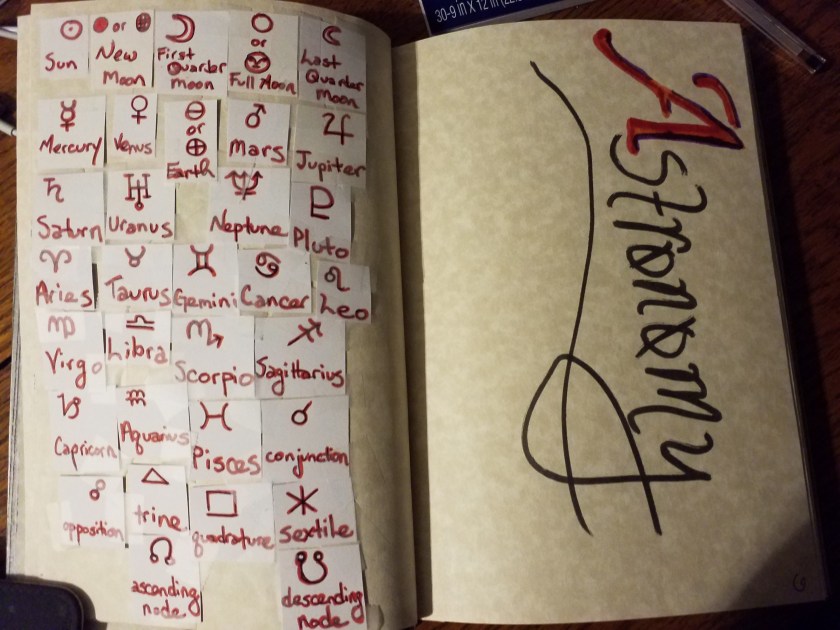 30-9 in x 12 in
Sun
or
New
Moon
First
Quarter
moon
or
Full Moon
Last
Quarter
Moon
Mercury
Venus
or
Earth
Mars
Jupiter
Saturn
Uranus
Neptune
Pluto
Aries
Taurus
Gemini
Cancer
Leo
Virgo
Libra
Scorpio
Sagittarius
Capricorn
Aquarius
Pisces
conjunction
opposition
trine
quadrature
sextile
ascending
node
descending
node
Astronomy